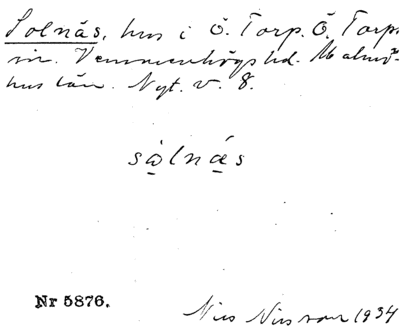 Solnäs, hus i Ö. Torp. Ö. Torps
sn. Vemmenhögs hd. Malmö-
hus län. Nyt. v. 8.
sòlnás
Nr 5876.
Nils Nilsson 1934